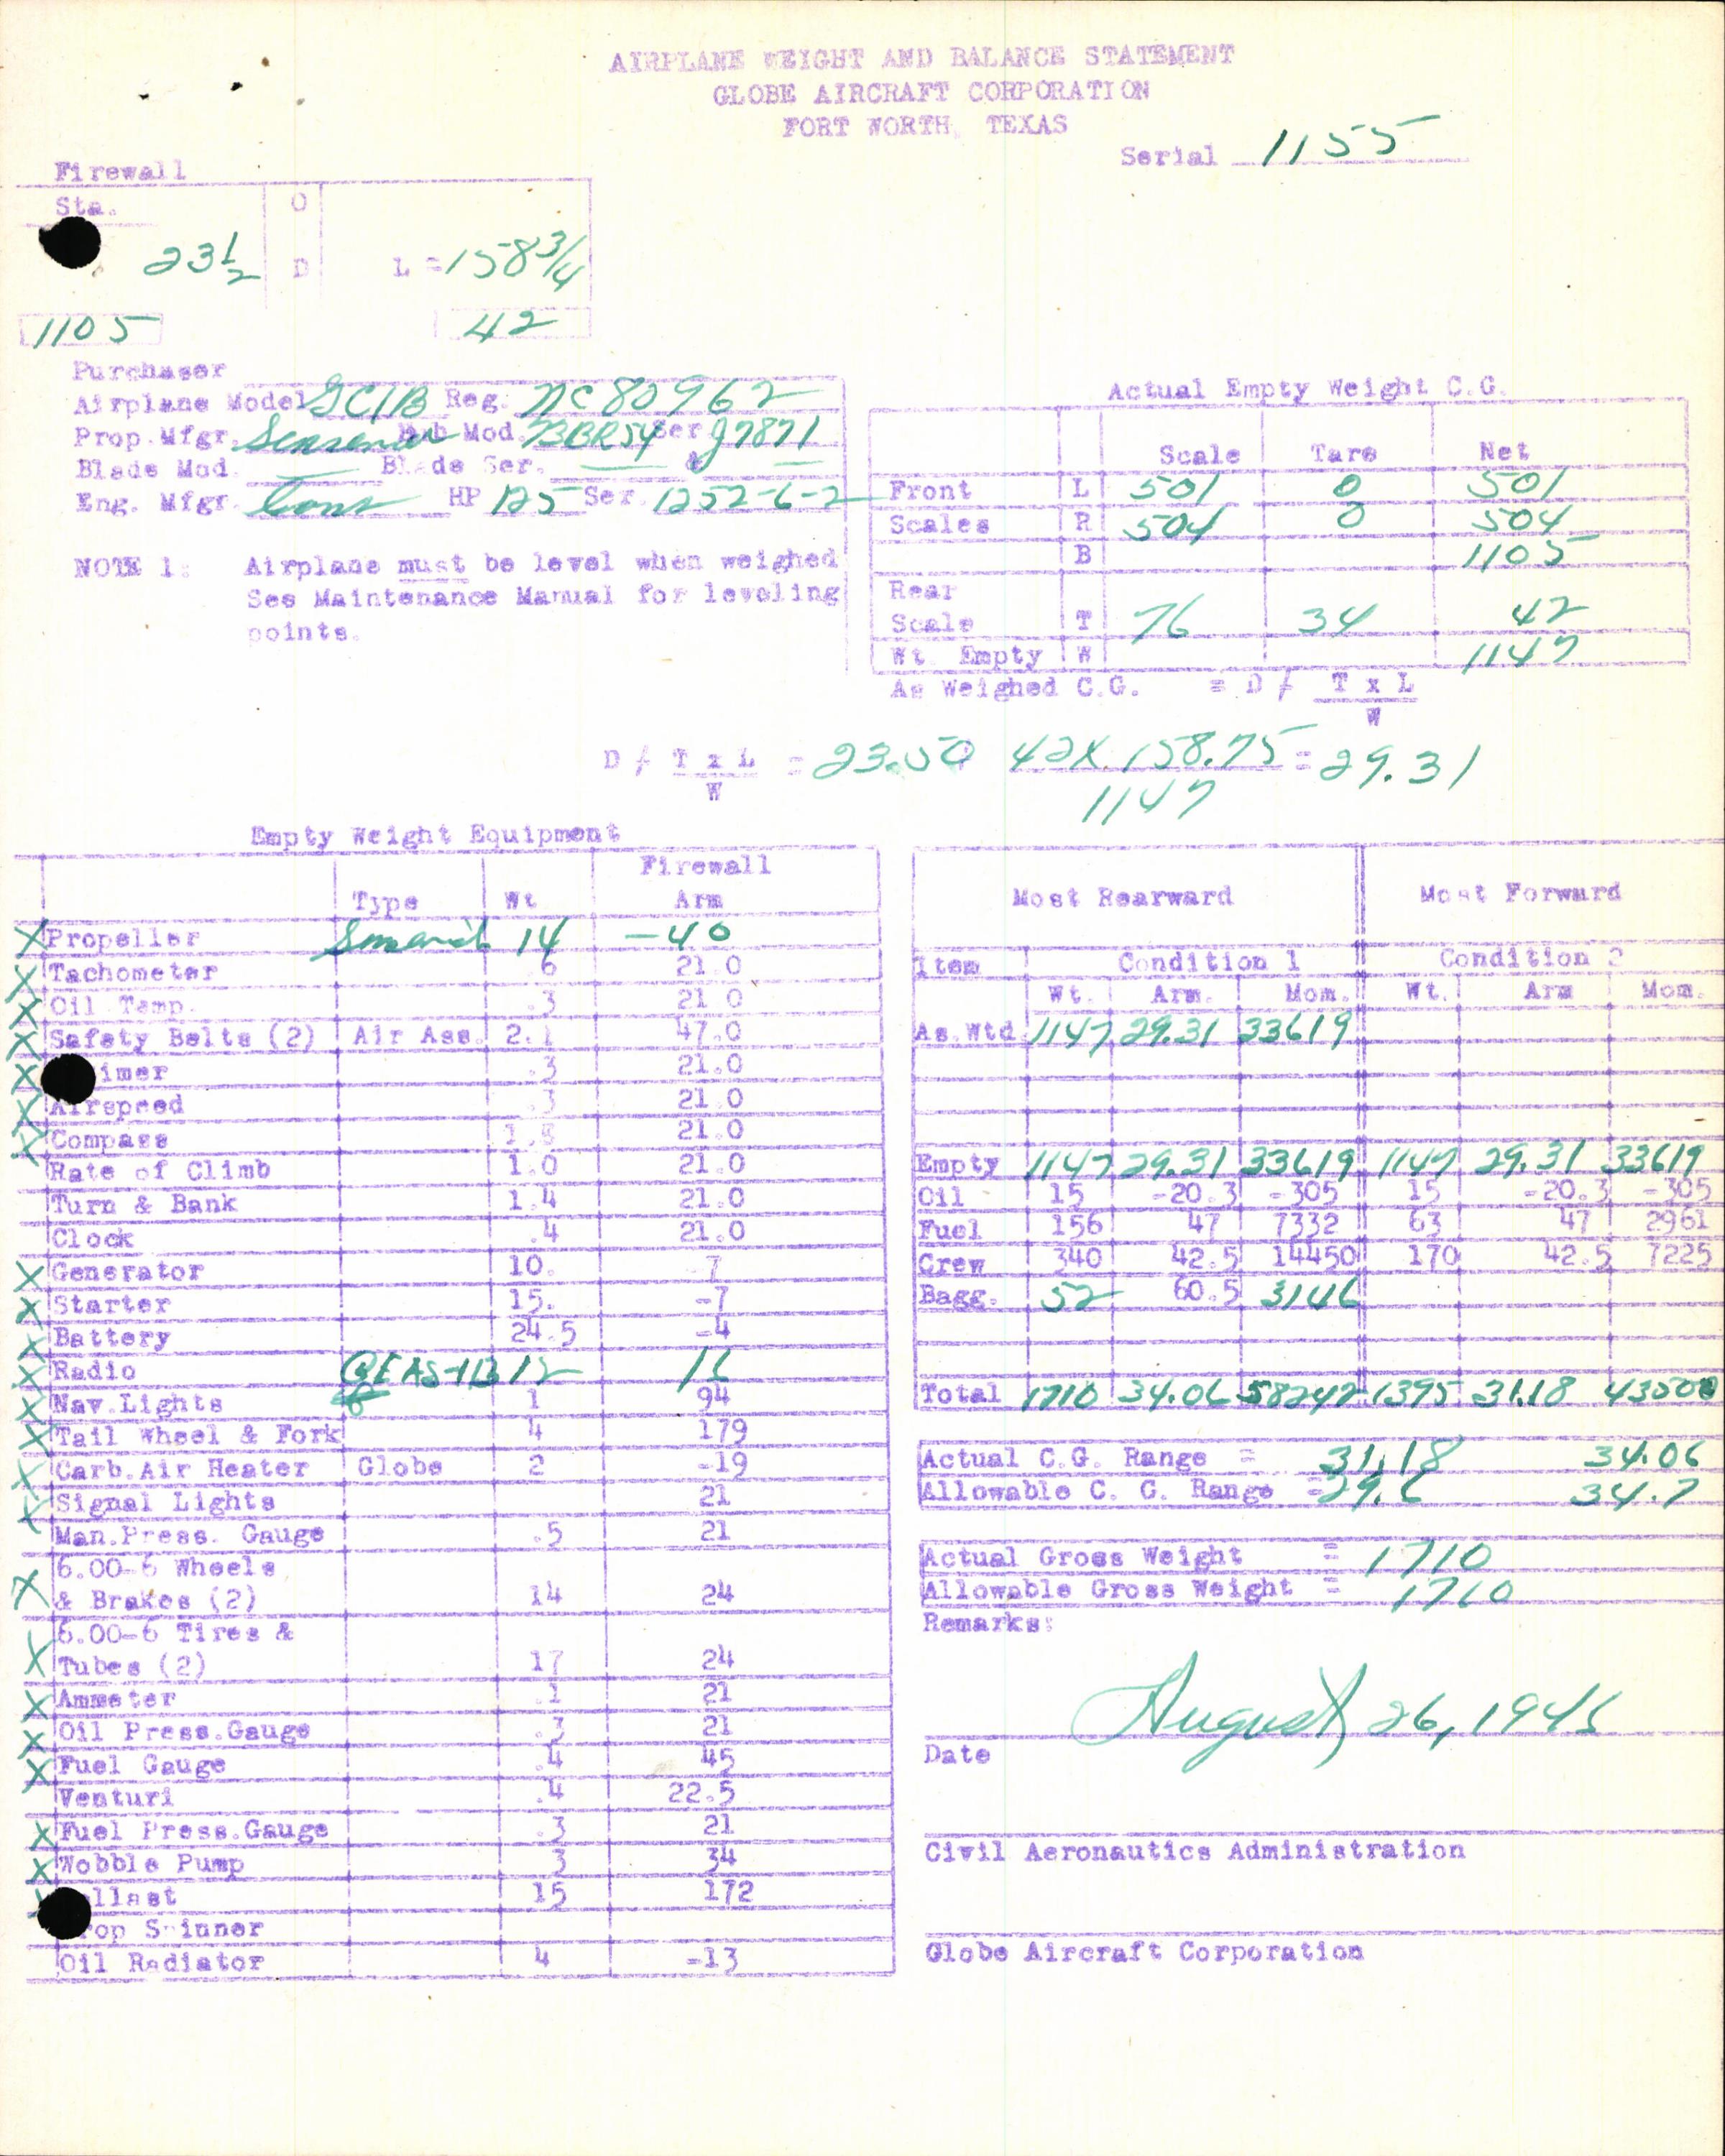 AIRPLANE WEIGHT AND BALANCE STATEMENT
GLOBE AIRCRAFT CORPORATION
FORT WORTH, TEXAS
Serial 1155
Firewall
Sta. O
23 1/2 D L = 158 3/4
1105 42
Purchaser
Airplane Model GC1B Reg. NC 80962
Prop.Mfgr. Sensenich Hub Mod. Ser
Blade Mod. — Blade Ser. — & —
Eng. Mfgr. Cont HP 125 Ser. 1252-6-2
NOTE 1: Airplane must be level when weighed
See Maintenance Manual for leveling
points.
Actual Empty Weight C.G.
Scale Tare Net
Front L 501 0 501
Scales R 504 0 504
B 1105
Rear
Scale T 76 34 42
Wt. Empty W 1147
As Weighed C.G. = D ≠ T x L
W
D ≠ T x L = 23.50 42 X 158.75 = 29.31
W 1147
Empty Weight Equipment
Firewall
Type Wt Arm
X Propeller 14 -40
X Tachometer .6 21.0
X Oil Temp. .3 21.0
X Safety Belts (2) Air Ass. 2.1 47.0
X imer .3 21.0
X Airspeed .3 21.0
X Compass 21.0
Rate of Climb 1.0 21.0
Turn & Bank 1.4 21.0
Clock .4 21.0
X Generator 10. -7
X Starter 15. -7
X Battery 24.5 -4
X Radio 12 16
X Nav.Lights 1 94
X Tail Wheel & Fork 4 179
X Carb.Air Heater Globe 2 -19
X Signal Lights 21
Man.Press. Gauge .5 21
6.00-6 Wheels
X & Brakes (2) 14 24
6.00-6 Tires &
X Tubes (2) 17 24
X Ammeter .1 21
X Oil Press.Gauge .3 21
X Fuel Gauge .4 45
Venturi .4 22.5
X Fuel Press.Gauge .3 21
X Wobble Pump 3 34
allast 15 172
rop Spinner
Oil Radiator 4 -13
Most Rearward Most Forward
Item Condition 1 Condition 2
Wt. Arm. Mom. Wt. Arm Mom.
As.Wtd. 1147 29.31 33619
Empty 1147 29.31 33619 1147 29.31 33619
Oil 15 -20.3 -305 15 -20.3 -305
Fuel 156 47 7332 63 47 2961
Crew 340 42.5 14450 170 42.5 7225
Bagg. 52 60.5 3146
Total 1710 34.06 58242 1395 31.18 43500
Actual C.G. Range = 31.18 34.06
Allowable C. G. Range = 29.6 34.7
Actual Gross Weight = 1710
Allowable Gross Weight = 1710
Remarks:
August 26, 1946
Date
Civil Aeronautics Administration
Globe Aircraft Corporation